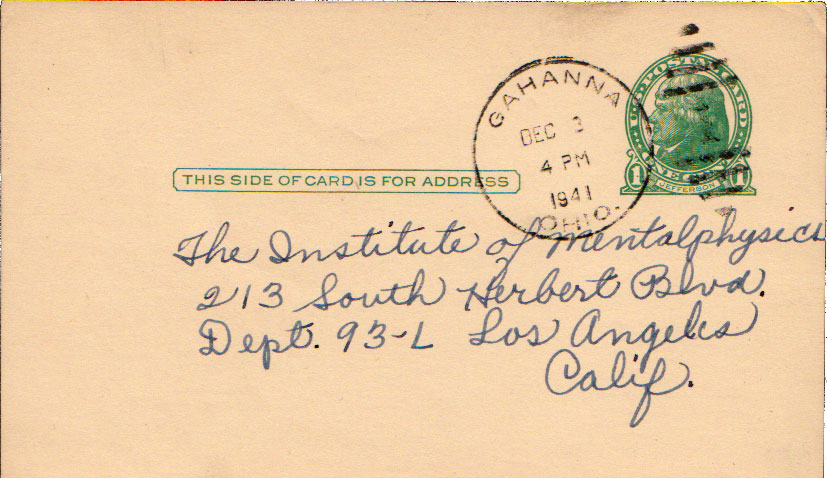 GAHANNA
DEC 3
4 PM
1941
OHIO.
U.S. POSTAL CARD
ONE CENT
1 1
JEFFERSON
THIS SIDE OF CARD IS FOR ADDRESS
The Institute of Mentalphysics
213 South Herbert Blvd.
Dept. 93-L Los Angeles
Calif.